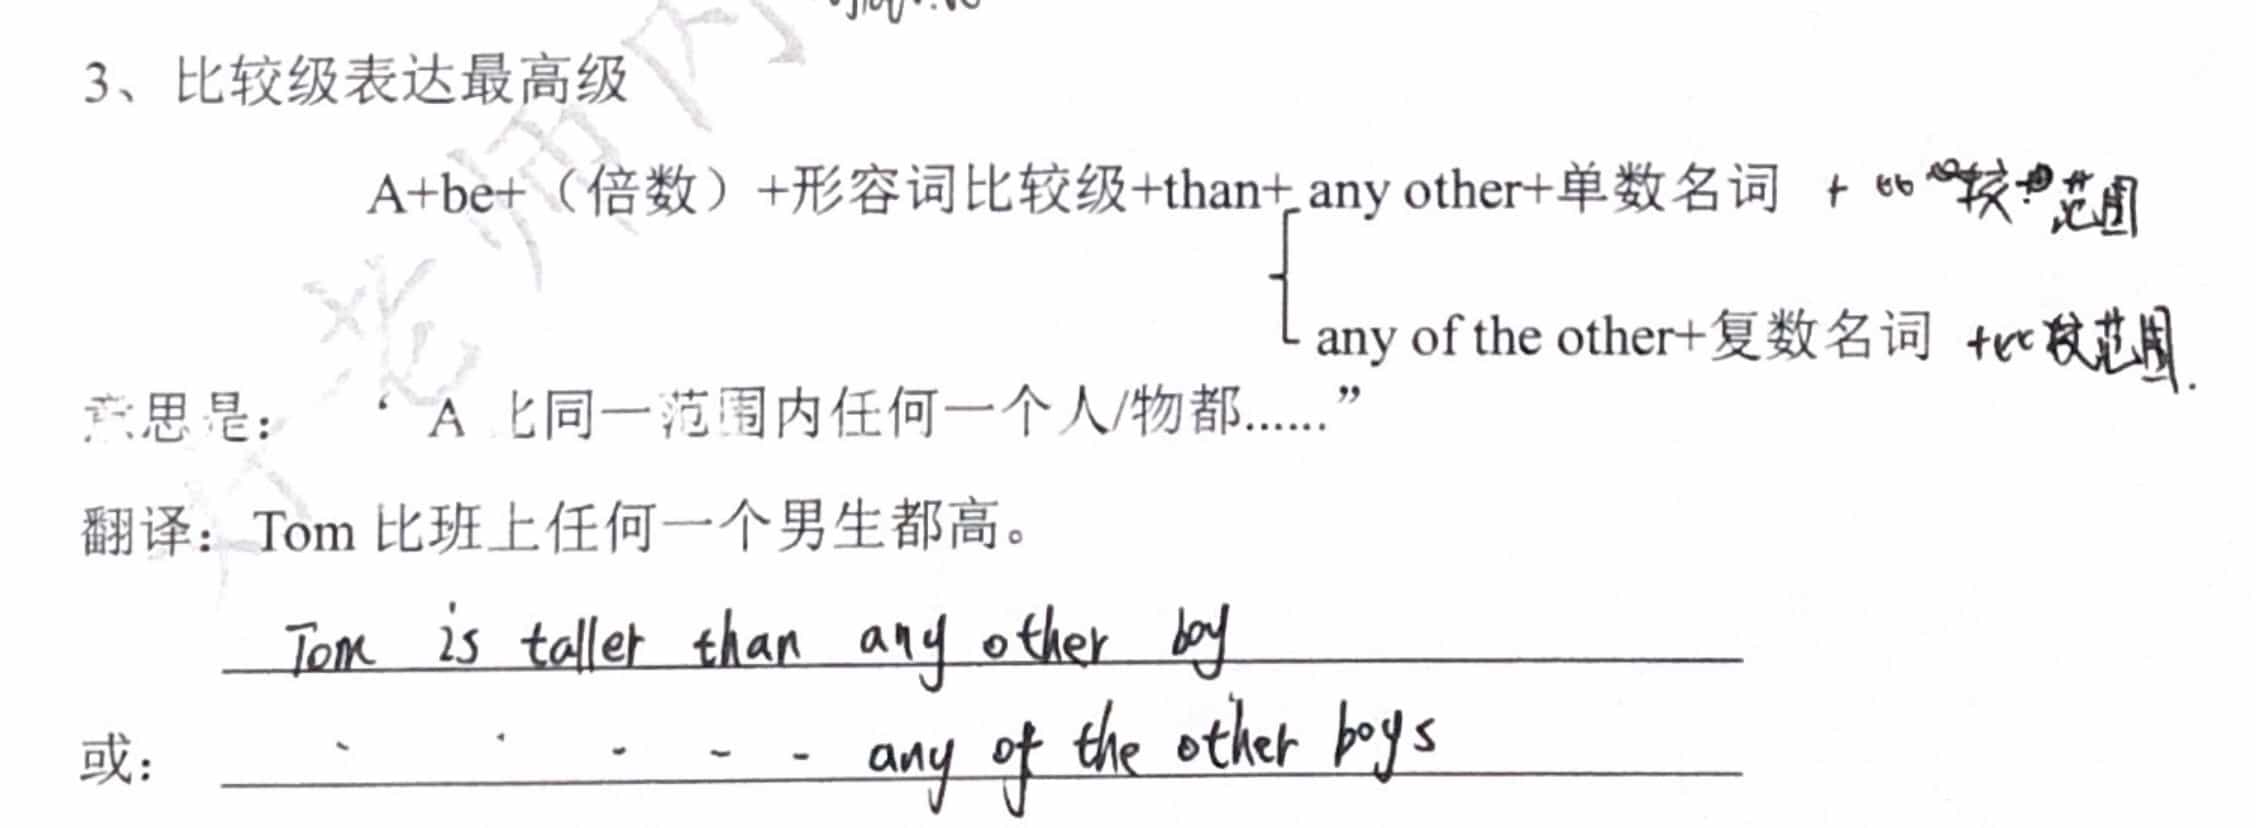 3、比较级表达最高级
A+be+（倍数）+形容词比较级+than+ any other+单数名词 + 比较范围
any of the other+复数名词 +比较范围.
意思是：“A 比同一范围内任何一个人/物都......”
翻译：Tom 比班上任何一个男生都高。
Tom is taller than any other boy
或： - - - - - any of the other boys